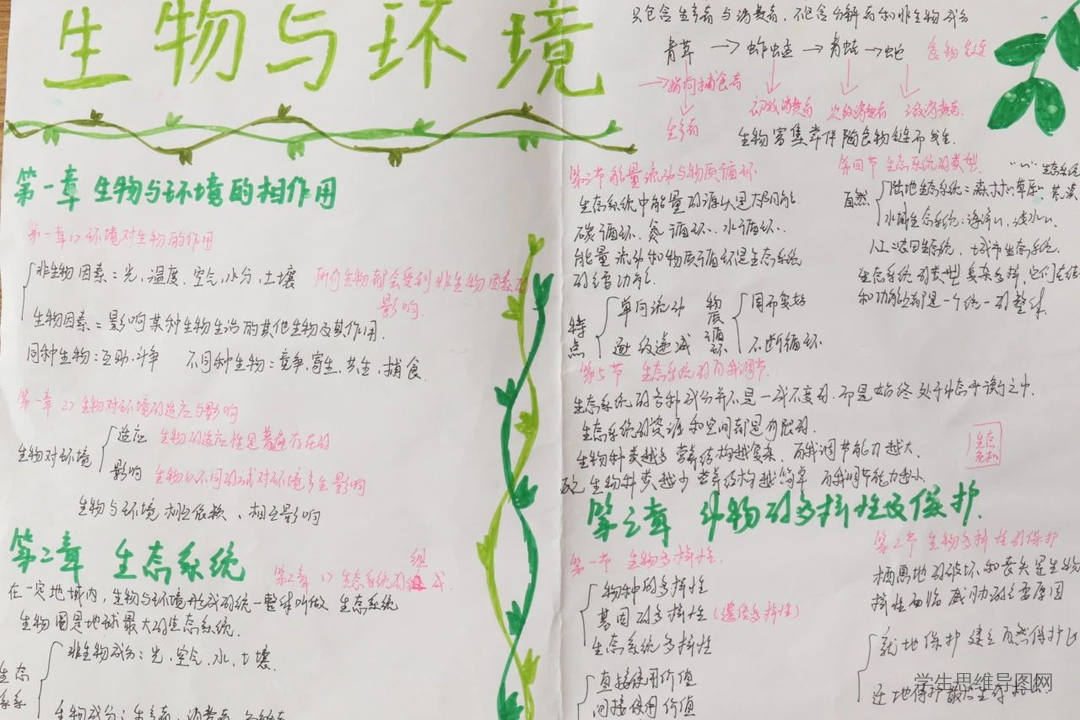 生物与环境
第一章 生物与环境的相作用
第一章1) 环境对生物的作用
非生物因素：光,温度,空气,水分,土壤
所有生物都会受到非生物因素的影响.
生物因素：影响某种生物生活的其他生物及其作用.
同种生物：互助.斗争 不同种生物：竞争,寄生,共生,捕食.
第一章2) 生物对环境的适应与影响
生物对环境
适应 生物的适应性是普遍存在的
影响 生物以不同的方式对环境产生影响
生物与环境相互依赖、相互影响
第二章 生态系统
第二章 1) 生态系统的组成
在一定地域内,生物与环境形成的统一整体叫做 生态系统
生物圈是地球最大的生态系统.
生态系
非生物成分：光,空气,水,土壤.
生物成分：生产者,消费者,分解者
只包含生产者与消费者,不包含分解者和非生物成分
青草 → 蚱蜢 → 青蛙 → 蛇 食物链
捕食者
生产者 初级消费者 次级消费者 三级消费者.
生物富集常伴随食物链而发生.
第三节 能量流动与物质循环
生态系统中能量的源头是太阳能
碳循环、氮循环、水循环、
能量流动和物质循环是生态系统
的 功能
特点
单向流动
逐级递减
物质循环
周而复始
不断循环.
第四节 生态系统的类型
自然
陆地生态系统：森林 草原 荒漠
水域生态系统：海洋 淡水
人工：农田生态系统,城市生态系统.
生态系统的类型多种多样,它们
和功能都是一个统一的整体.
第5节 生态系统的自我调节.
生态系统的各种成分并不是一成不变的.而是始终处于动态平衡之中.
生态系统的资源和空间都是有限的.
生物种类越多 营养结构越复杂, 自我调节能力越大.
反之 生物种类越少 营养结构越简单 自我调节能力越小
第三章 生物的多样性及保护.
第一节 生物多样性.
物种的多样性
基因的多样性 (遗传多样性)
生态系统多样性
直接使用价值
间接使用价值
第2节 生物多样性的保护
栖息地的破坏和丧失是生物
多样性面临威胁的主要原因
就地保护 建立自然保护区
迁地保护
学生思维导图网